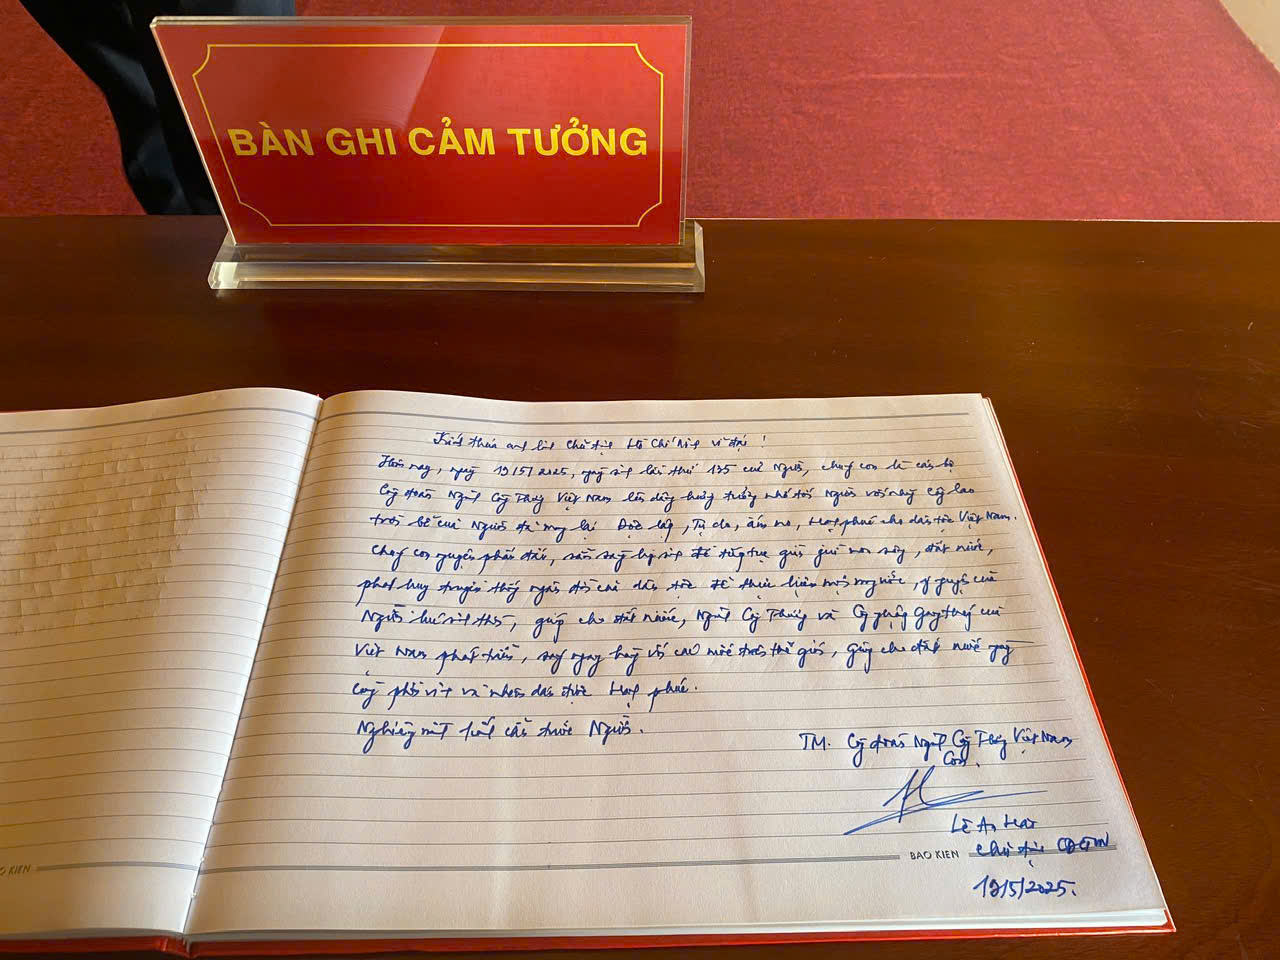 BÀN GHI CẢM TƯỞNG
Kính thưa anh linh Chủ tịch Hồ Chí Minh vĩ đại!
Hôm nay, ngày 19/5/2025, ngày sinh lần thứ 135 của Người, chúng con là cán bộ
Công đoàn Ngành Công Thương Việt Nam lên đây tưởng nhớ tới Người với những công lao
trời bể của Người đã mang lại Độc lập, Tự do, ấm no, Hạnh phúc cho dân tộc Việt Nam.
Chúng con nguyện phấn đấu, sẵn sàng hy sinh để tiếp tục gìn giữ non sông, đất nước,
phát huy truyền thống ngàn đời của dân tộc để thực hiện mong ước, ý nguyện của
Người lúc sinh thời, giúp cho đất nước, Ngành Công Thương và Công Thương của
Việt Nam phát triển, sánh ngang với các nước trên thế giới, giúp cho đất nước ngày
càng phồn vinh và nhân dân được Hạnh phúc.
Nghiêng mình kính cẩn trước Người.
TM. Công đoàn Ngành Công Thương Việt Nam
Con.
Lê
Chủ tịch CĐCTVN
19/5/2025.
BAO KIEN
O KIEN